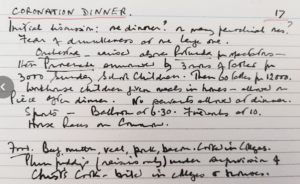 CORONATION DINNER. 17
Initial discussion: one dinner? or many parochial ones?
Fear of drunkenness at one large one.
Orchestra - raised above Rotunda for spectators -
Then Promenade surrounded by 3 rows of tables for
3000 Sunday School Children. Then 60 tables for 12000.
Workhouse children given meals in homes - allowed on
Piece after dinner. No parents allowed at dinner.
Sports - Balloon at 6.30. Fireworks at 10.
Horse Races on Common.
Food. Beef, mutton, veal, pork, bacon. Cooked in Colleges.
Plum pudding (raisins only) under supervision of
Christ's Cook - boiled in colleges & houses.